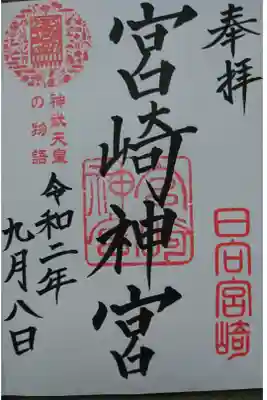 奉拝
宮崎神宮
日向宮崎
宮崎神宮
神武天皇
の物語
令和二年
九月八日